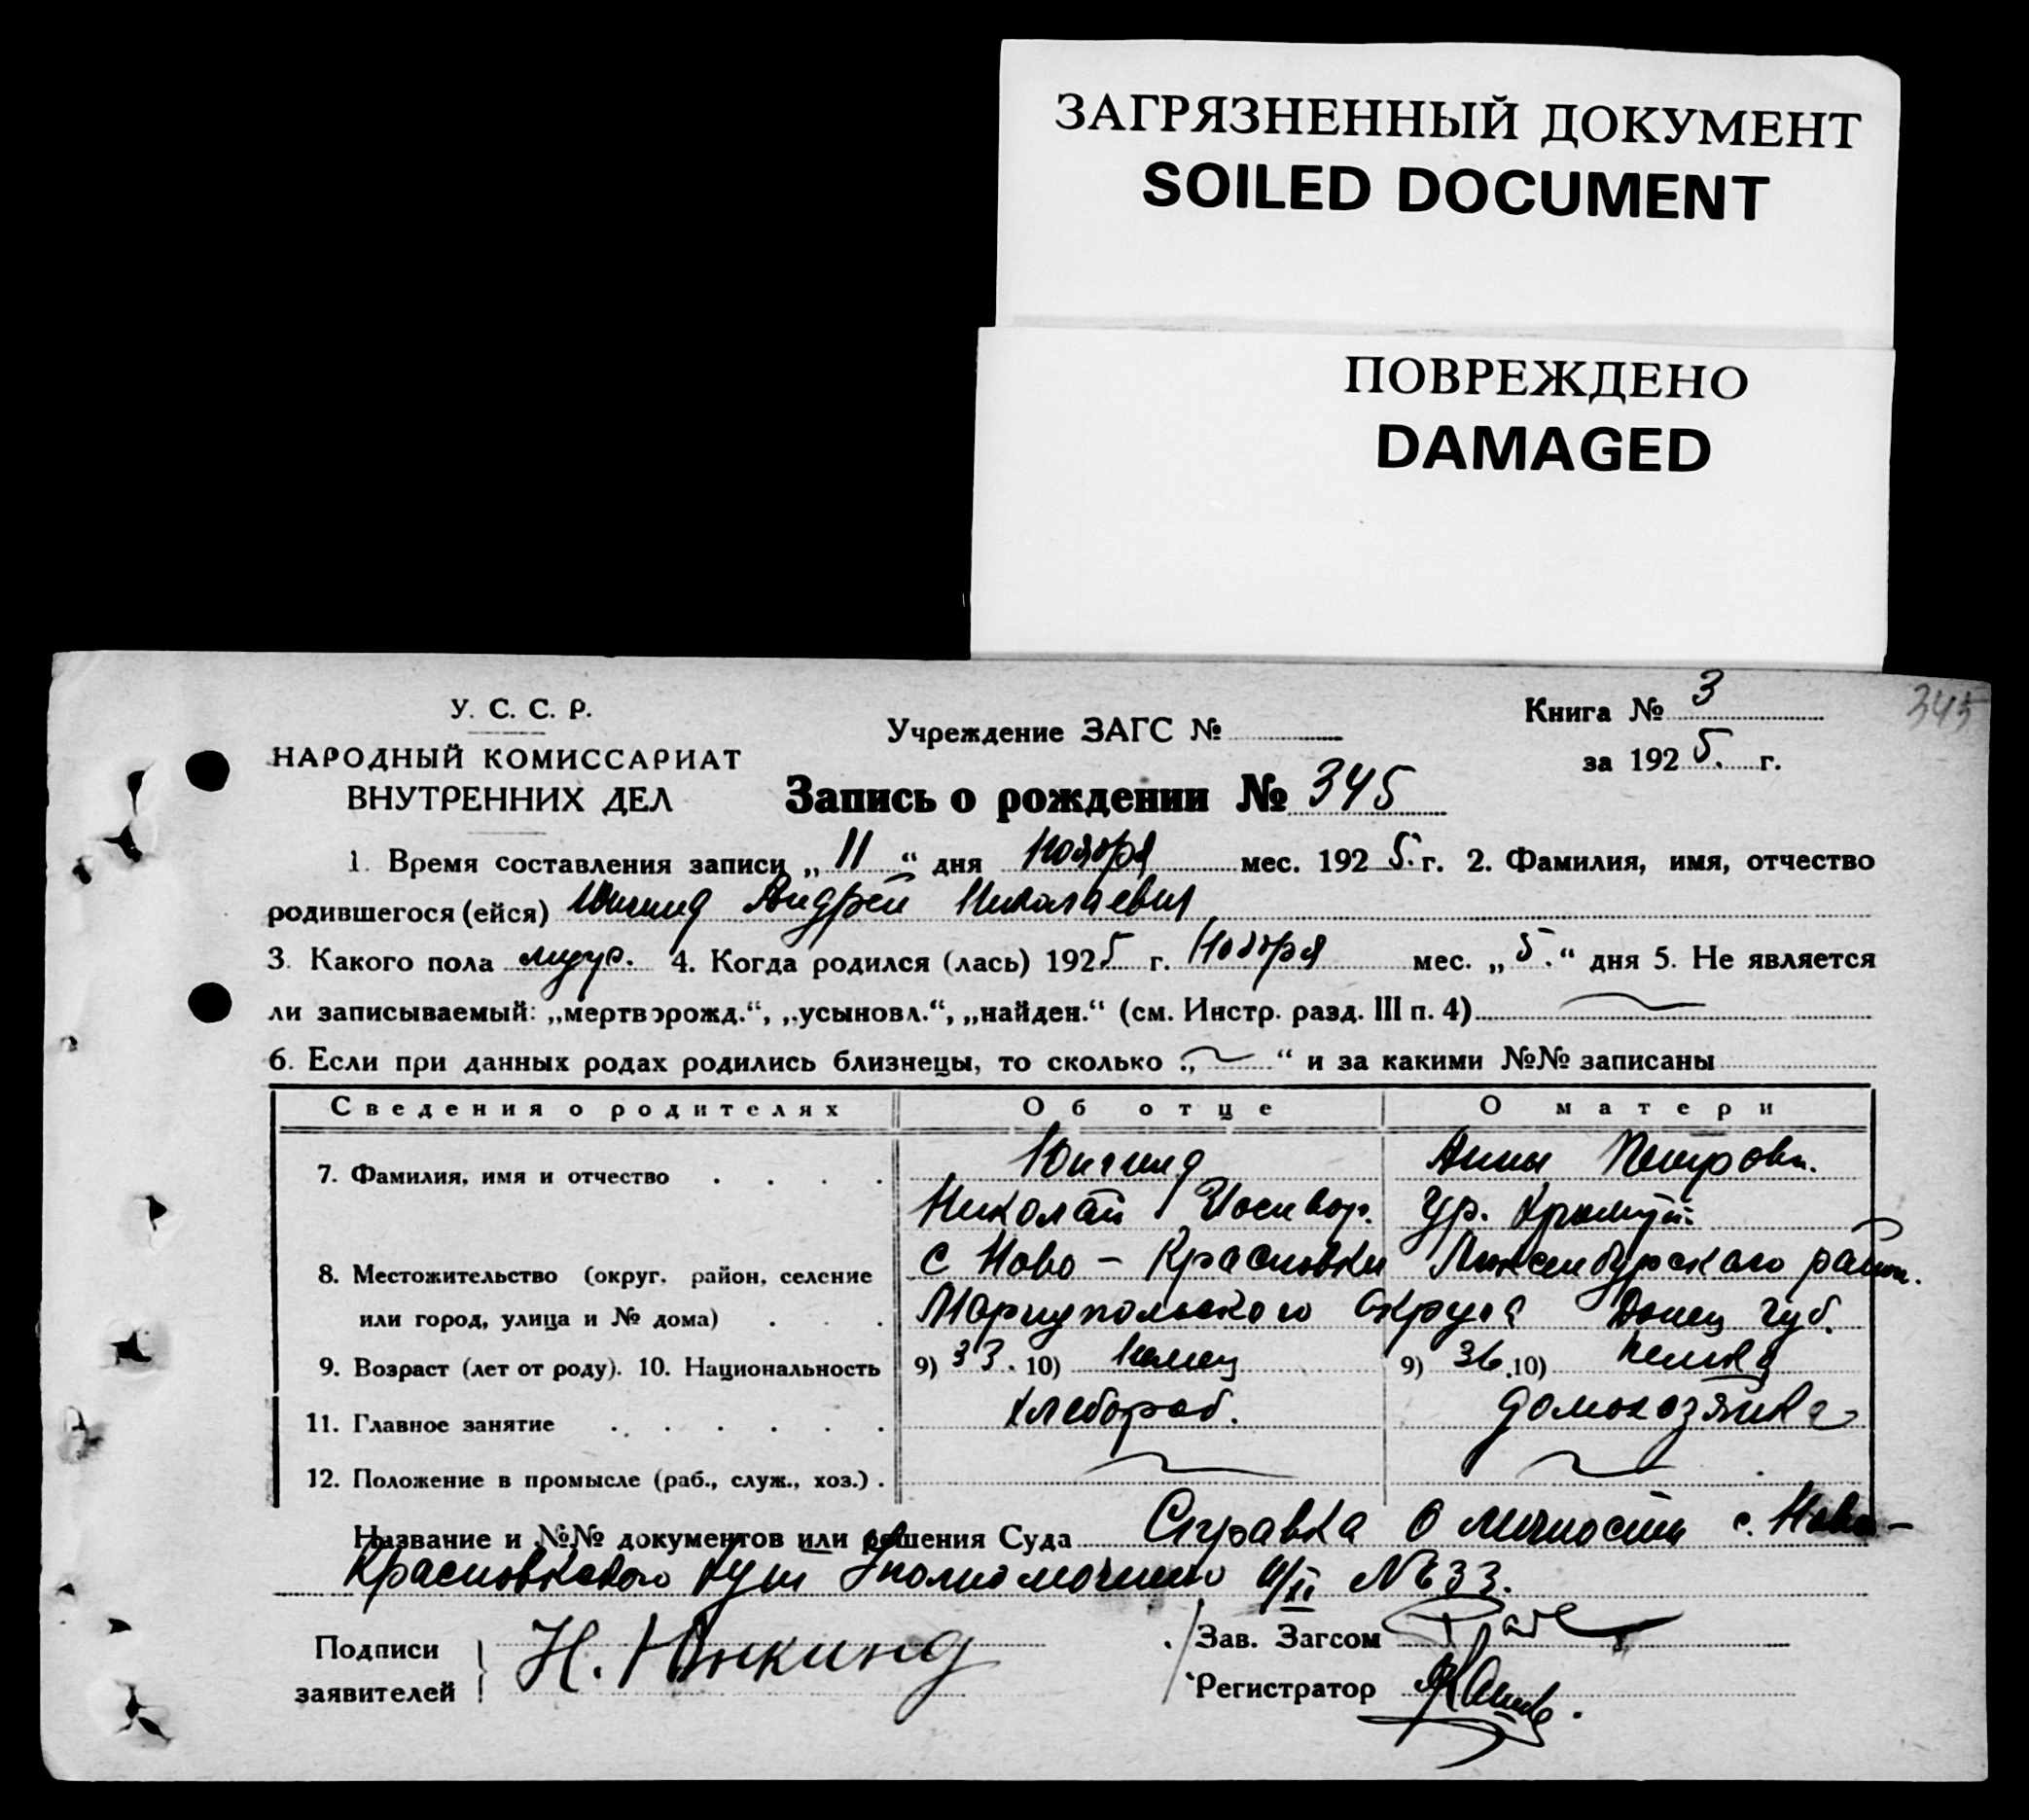 ЗАГРЯЗНЕННЫЙ ДОКУМЕНТ
SOILED DOCUMENT
ПОВРЕЖДЕНО
DAMAGED
У. С. С. Р.
НАРОДНЫЙ КОМИССАРИАТ
ВНУТРЕННИХ ДЕЛ
Учреждение ЗАГС №
Книга № 3
345
за 1925. г.
Запись о рождении № 345
1. Время составления записи „11“ дня Ноября мес. 1925. г. 2. Фамилия, имя, отчество
родившегося (ейся) Андрей Николаевич
3. Какого пола муж. 4. Когда родился (лась) 1925 г. Ноября мес. „5.“ дня 5. Не является
ли записываемый: „мертворожд.“, „усыновл.“, „найден.“ (см. Инстр. разд. III п. 4)
6. Если при данных родах родились близнецы, то сколько „ “ и за какими №№ записаны
Сведения о родителях Об отце О матери
7. Фамилия, имя и отчество Анны Петровн.
Николай гр.
8. Местожительство (округ, район, селение с Ново-Красновки Люксембургского район.
или город, улица и № дома) Мариупольского Округа Донец губ.
9. Возраст (лет от роду). 10. Национальность 9) 33. 10) немец 9) 36. 10) немка
11. Главное занятие хлебороб. домохозяйка
12. Положение в промысле (раб., служ., хоз.)
Название и №№ документов или решения Суда Справка о личности с. Ново-
Красновского №33.
Подписи
заявителей Н. Юнкинд
Зав. Загсом
Регистратор